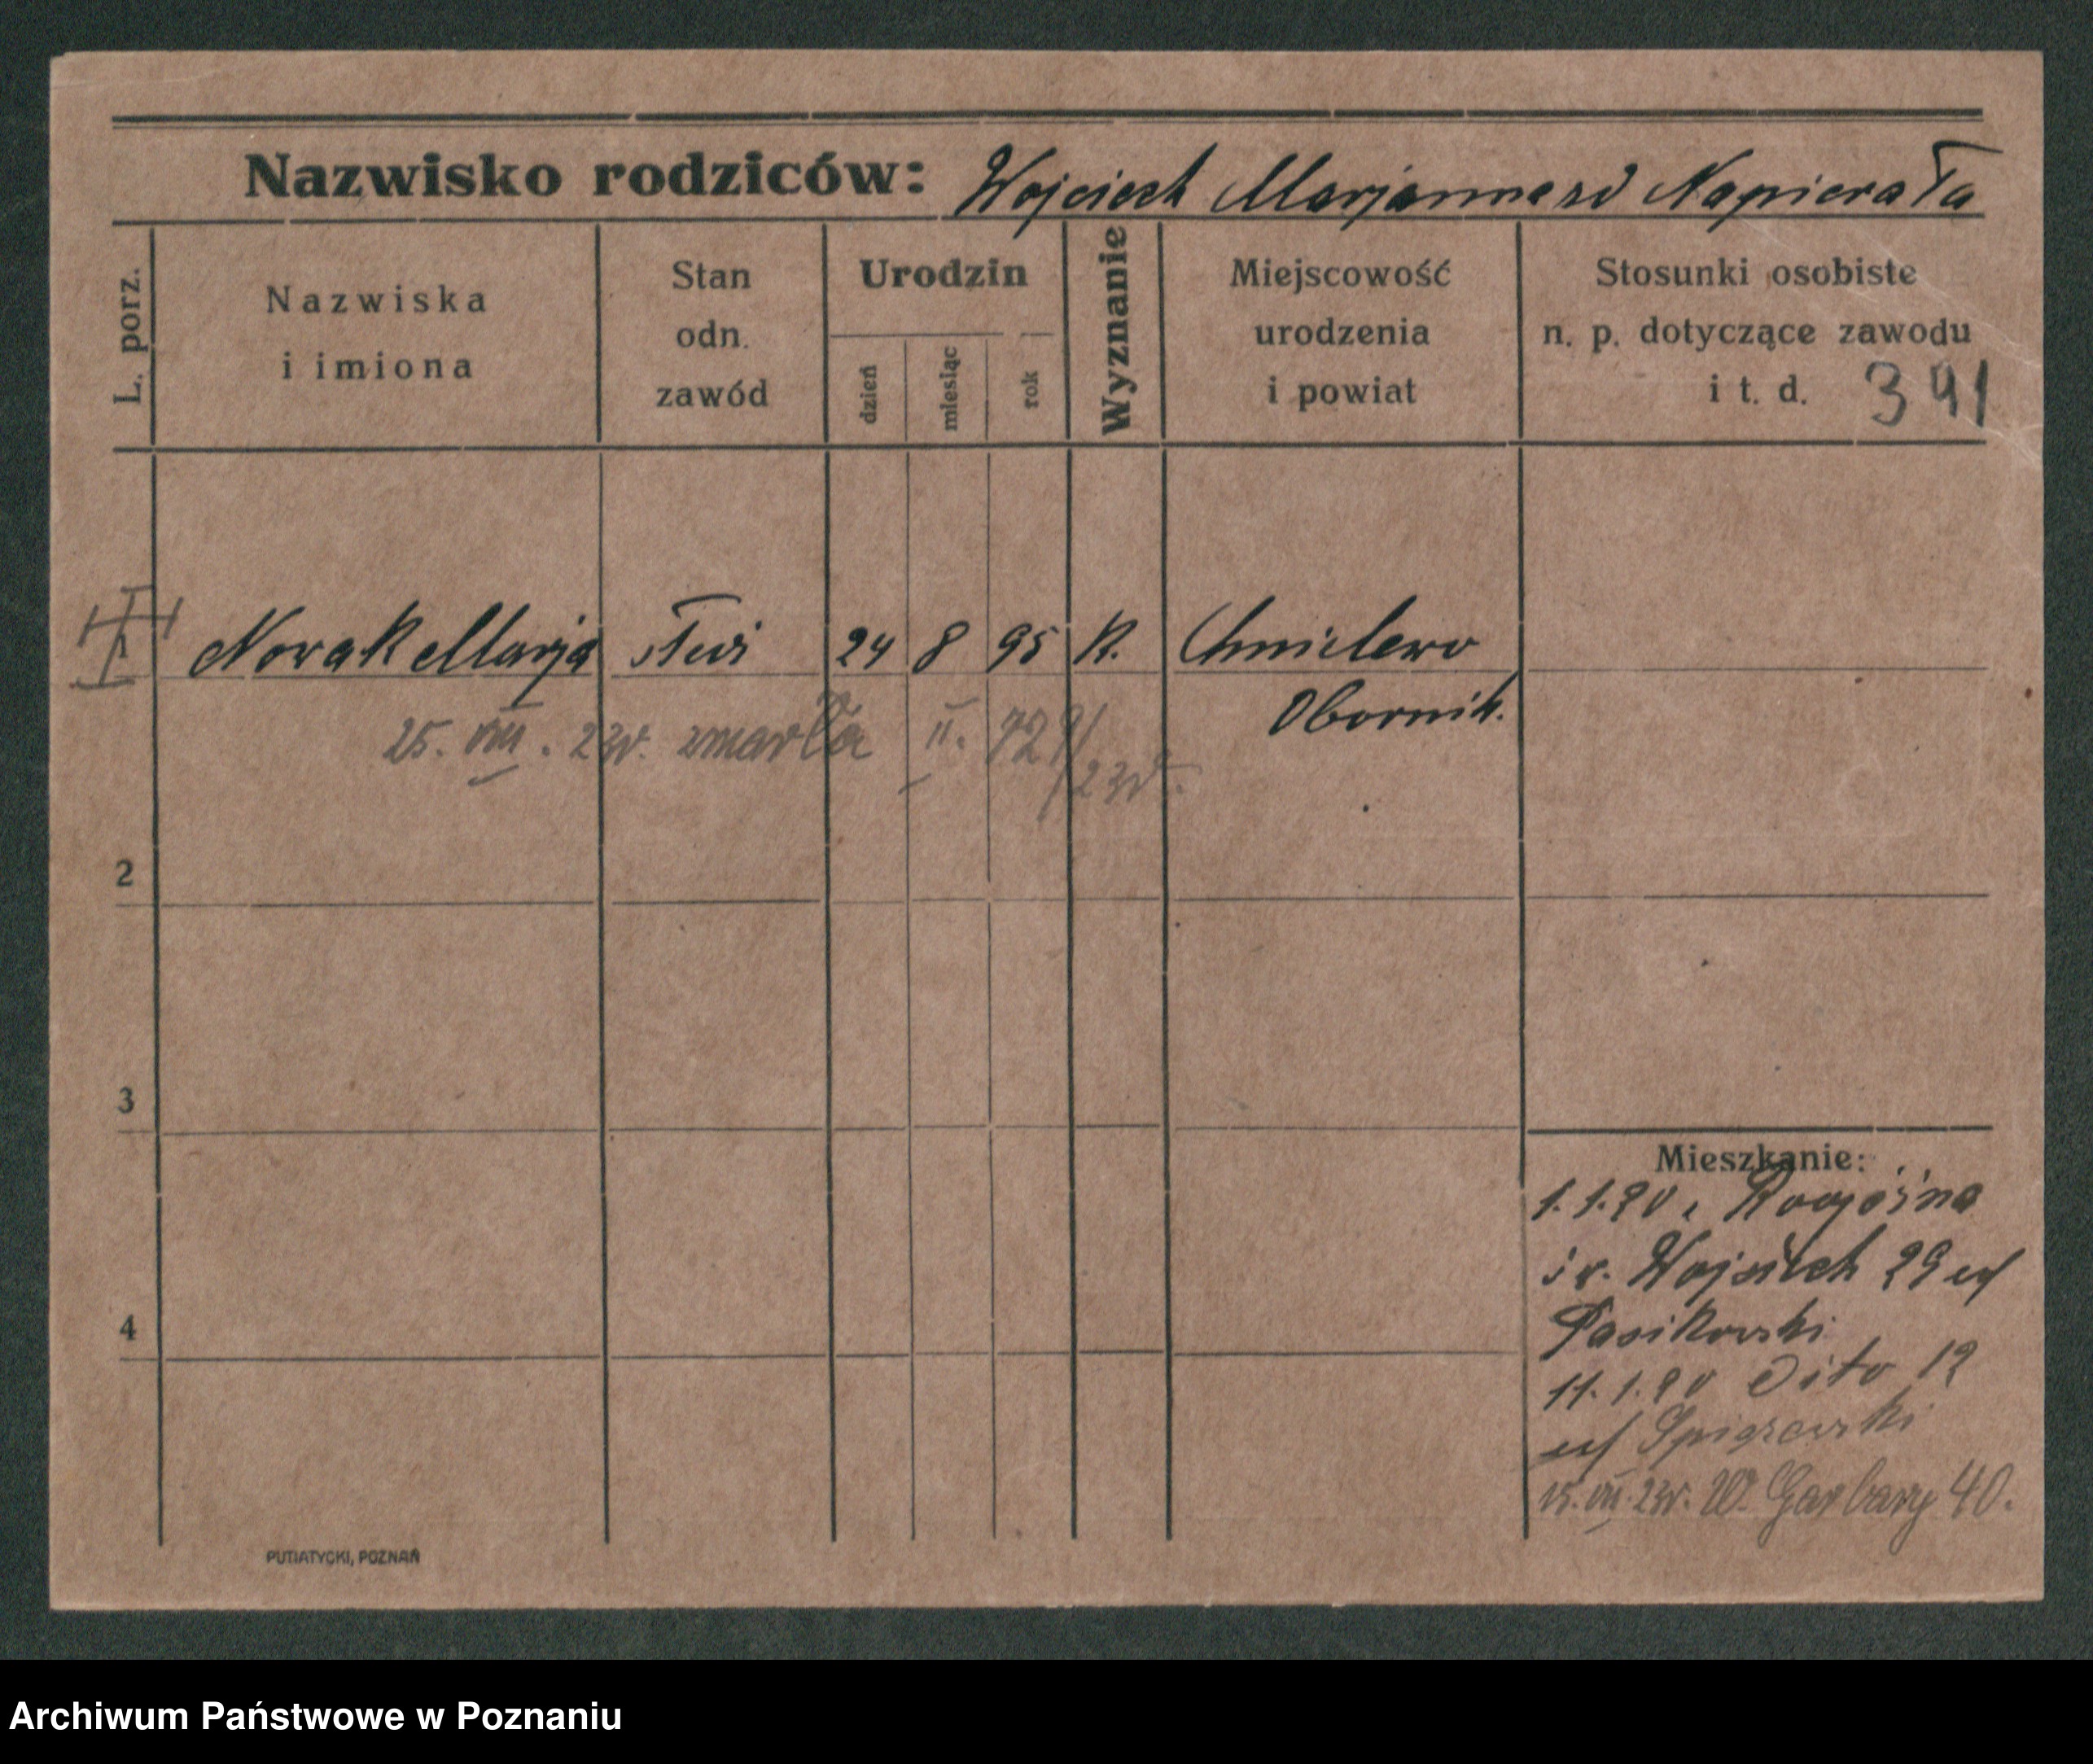 Nazwisko rodziców: Wojciech Marjanna zd Napierała
L. porz.
Nazwiska
i imiona
Stan
odn.
zawód
Urodzin
dzień
miesiąc
rok
Wyznanie
Miejscowość
urodzenia
i powiat
Stosunki osobiste
n. p. dotyczące zawodu
i t. d. 391
Nowak Marja służ 24 8 95 K. Chmielewo
Obornik.
25. VIII. 23r. zmarła II. 729/23r.
2
3
4
Mieszkanie:
1.1.20 z Rogoźna
św. Wojciech 29
Pasikowski
11.1.20 dito 12
15. VII. 23r. W. Garbary 40.
PUTIATYCKI, POZNAŃ
Archiwum Państwowe w Poznaniu